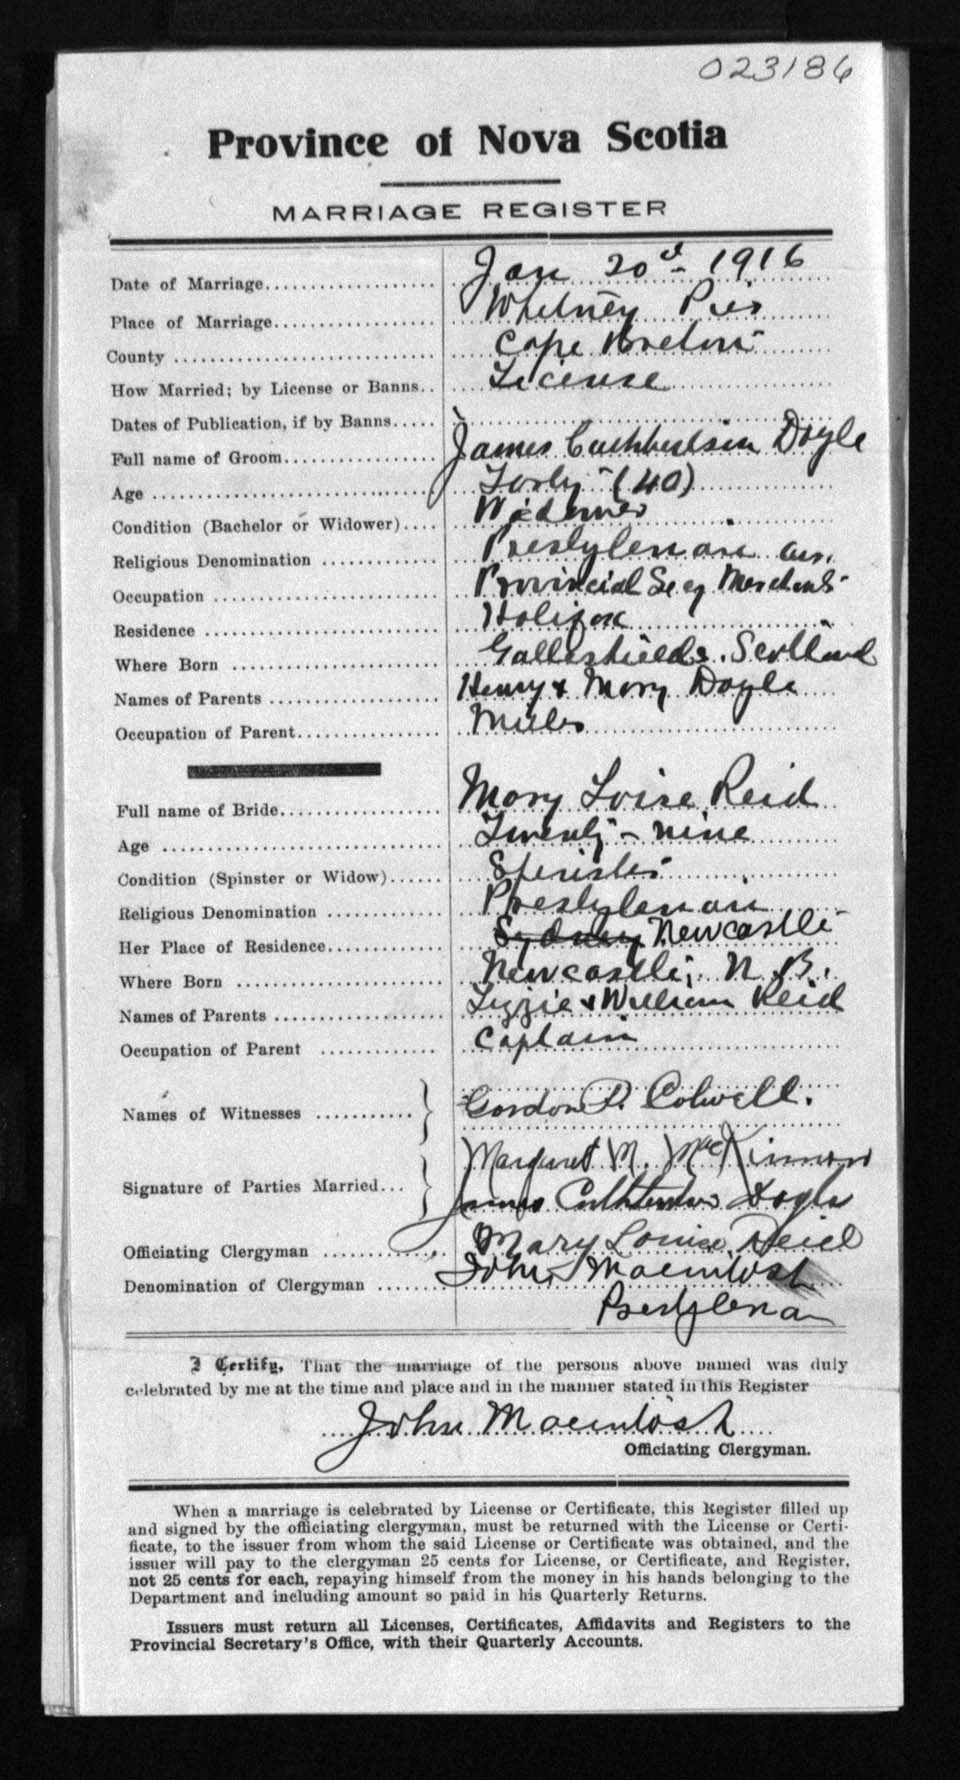 023186
Province of Nova Scotia
MARRIAGE REGISTER
Date of Marriage.................... Jan 20th 1916
Place of Marriage................... Whitney Pier
County ............................. Cape Breton
How Married; by License or Banns.. License
Dates of Publication, if by Banns.....
Full name of Groom.................. James Cuthbertson Doyle
Age ................................ Forty (40)
Condition (Bachelor or Widower).... Widower
Religious Denomination ............. Presbyterian
Occupation ......................... Provincial Secy
Residence .......................... Halifax
Where Born ......................... Gallashields. Scotland
Names of Parents ................... Henry & Mary Doyle
Occupation of Parent................
Full name of Bride.................. Mary Loise Reid
Age ................................ Twenty-nine
Condition (Spinster or Widow)...... Spinster
Religious Denomination ............. Presbyterian
Her Place of Residence.............. Sydney Newcastle
Where Born ......................... Newcastle, N.B.
Names of Parents ................... Lizzie & William Reid
Occupation of Parent ............... Captain
Names of Witnesses ............ Gordon P. Colwell.
Margaret M. MacKinnon
Signature of Parties Married... James Cuthbertson Doyle
Mary Louise Reid
Officiating Clergyman .............. John Macintosh
Denomination of Clergyman ........ Presbyterian
I Certify, That the marriage of the persons above named was duly
celebrated by me at the time and place and in the manner stated in this Register
John Macintosh
Officiating Clergyman.
When a marriage is celebrated by License or Certificate, this Register filled up
and signed by the officiating clergyman, must be returned with the License or Certi-
ficate, to the issuer from whom the said License or Certificate was obtained, and the
issuer will pay to the clergyman 25 cents for License, or Certificate, and Register,
not 25 cents for each, repaying himself from the money in his hands belonging to the
Department and including amount so paid in his Quarterly Returns.
Issuers must return all Licenses, Certificates, Affidavits and Registers to the
Provincial Secretary's Office, with their Quarterly Accounts.